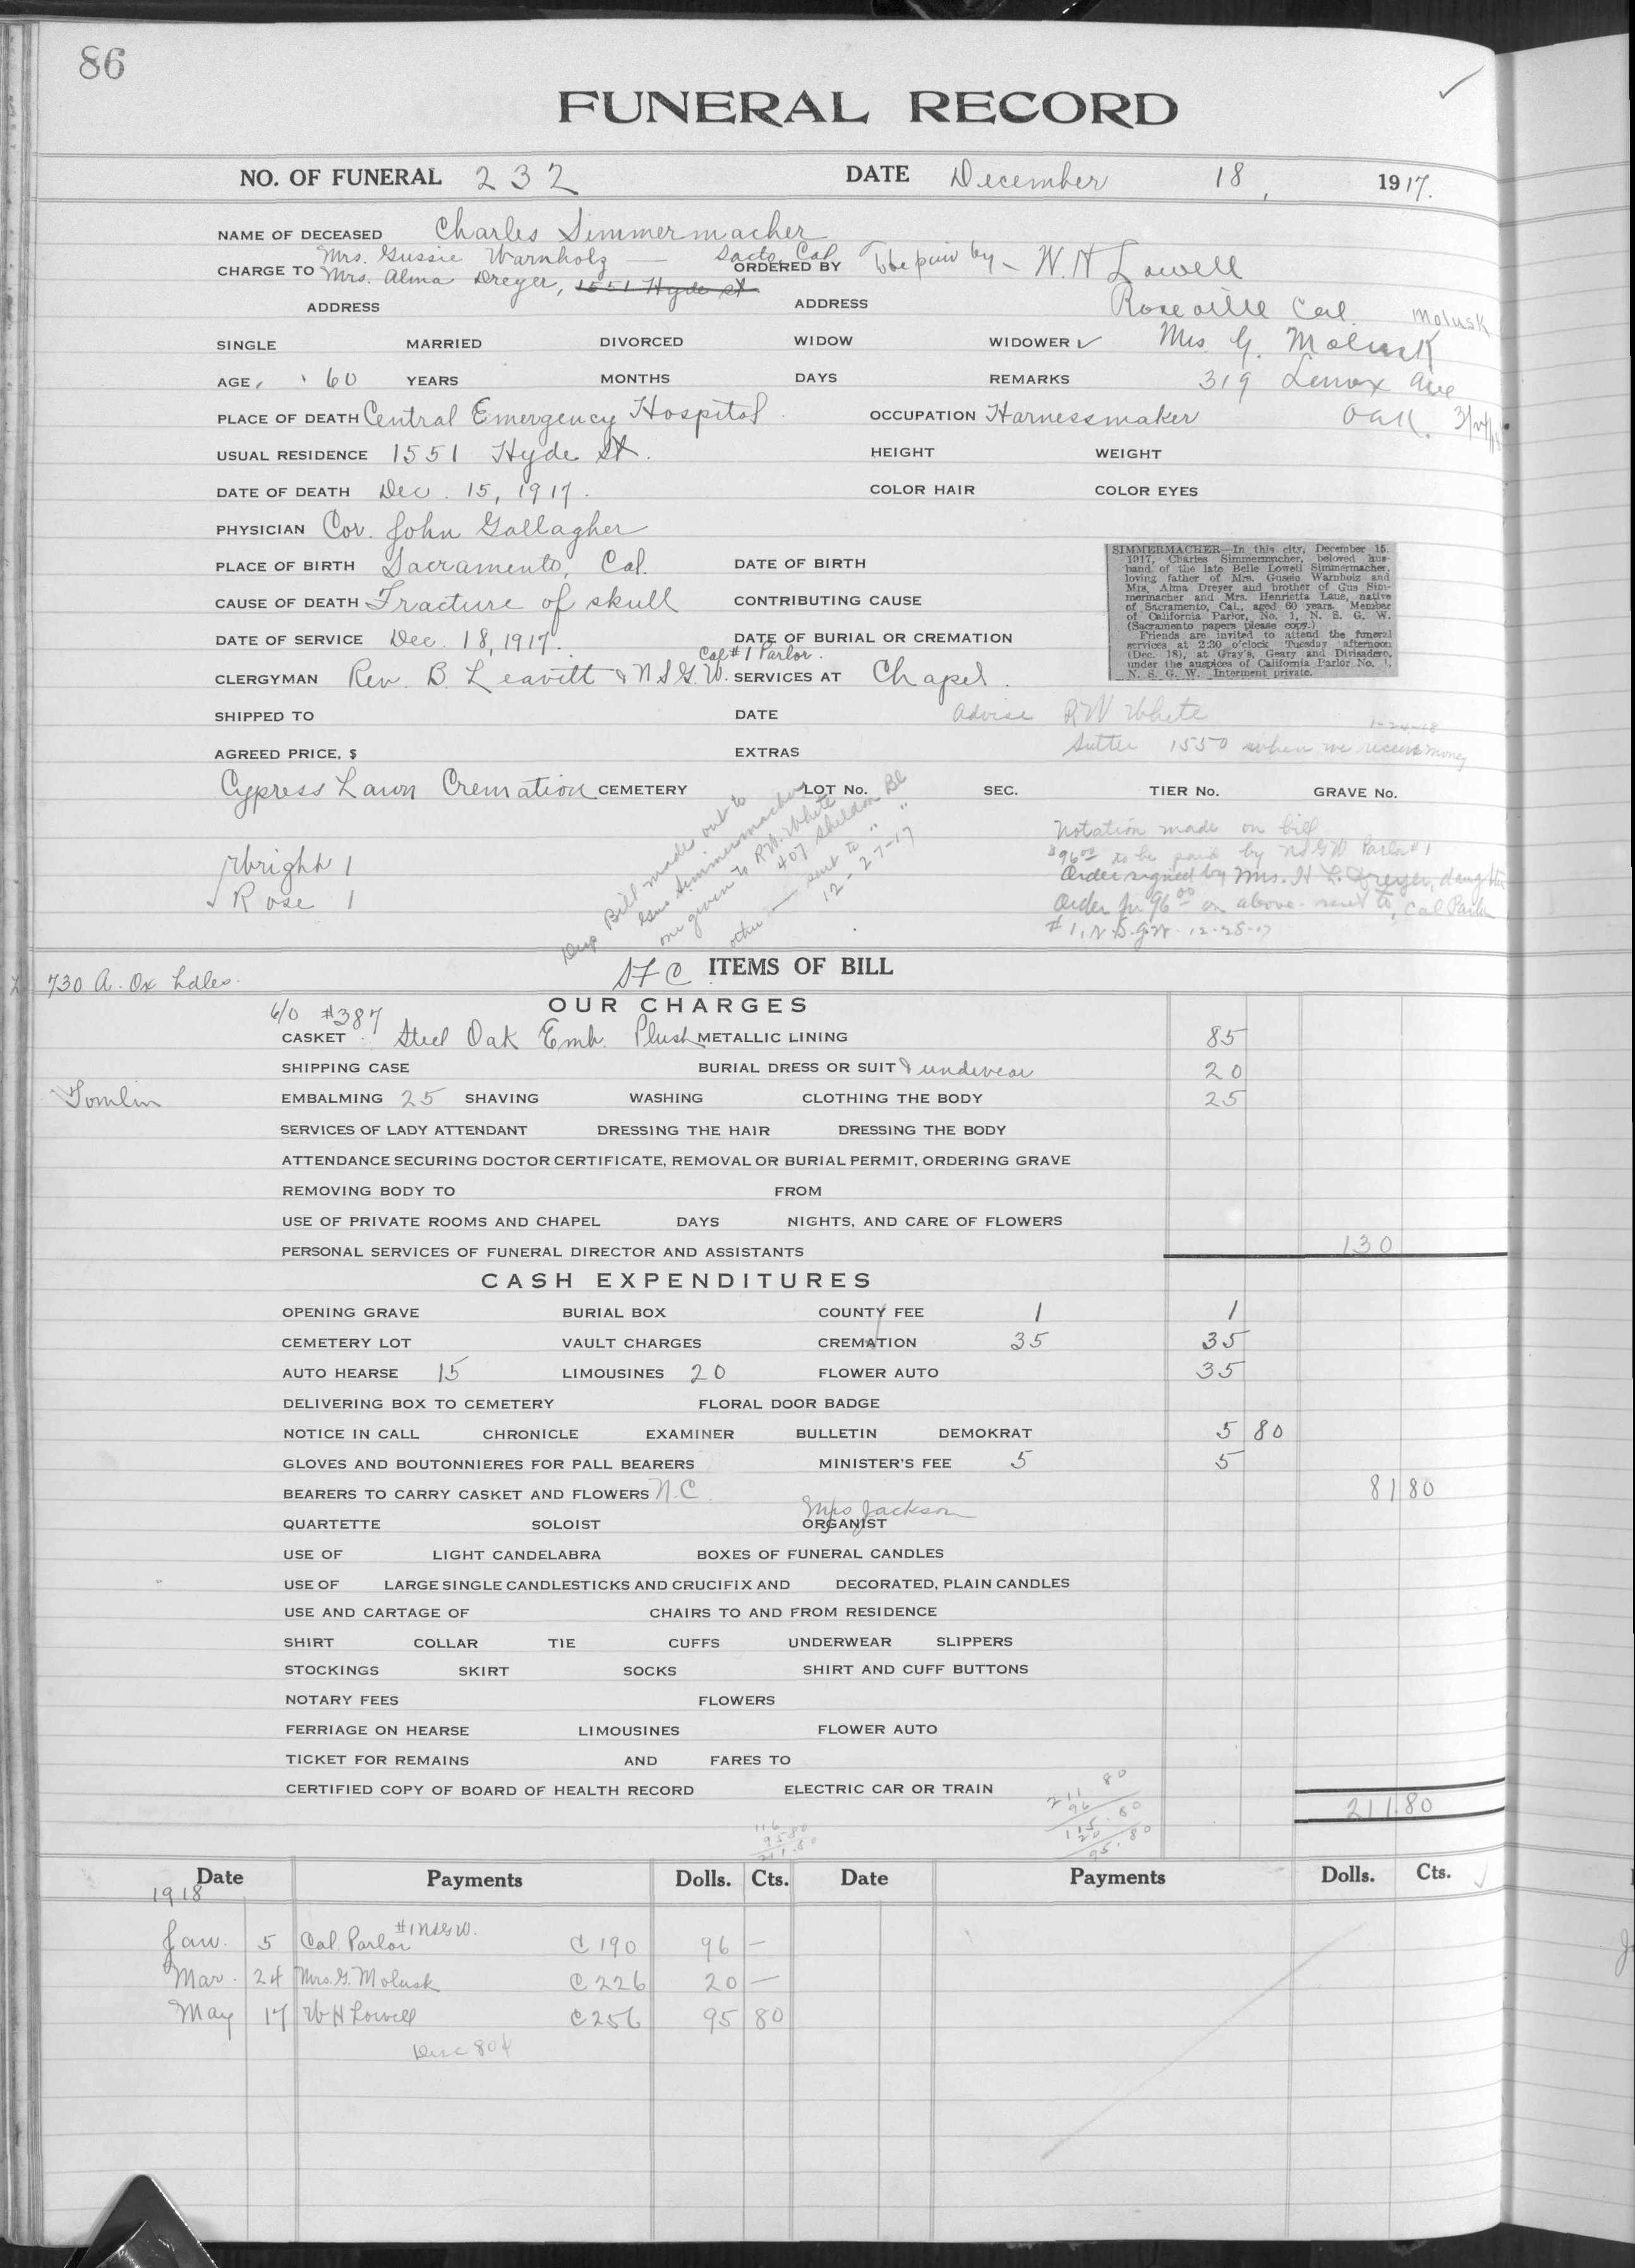 86
FUNERAL RECORD
NO. OF FUNERAL 232 DATE December 18, 1917.
NAME OF DECEASED Charles Simmermacher
Mrs. Gussie Warnholz — Sacto. Cal
CHARGE TO Mrs. Alma Dreyer, 1551 Hyde St ORDERED BY To be paid by - W. H Lowell
ADDRESS ADDRESS Roseville Cal. Molusk
SINGLE MARRIED DIVORCED WIDOW WIDOWER ✓ Mrs. G. Molusk
AGE 60 YEARS MONTHS DAYS REMARKS 319 Lenox Ave
PLACE OF DEATH Central Emergency Hospital OCCUPATION Harnessmaker Oak.
USUAL RESIDENCE 1551 Hyde St. HEIGHT WEIGHT
DATE OF DEATH Dec. 15, 1917. COLOR HAIR COLOR EYES
PHYSICIAN Cor. John Gallagher
PLACE OF BIRTH Sacramento, Cal. DATE OF BIRTH
CAUSE OF DEATH Fracture of skull CONTRIBUTING CAUSE
DATE OF SERVICE Dec. 18, 1917. DATE OF BURIAL OR CREMATION
Cal #1 Parlor.
CLERGYMAN Rev. B. Leavitt & N.S.G.W. SERVICES AT Chapel.
SIMMERMACHER—In this city, December 15,
1917, Charles Simmermacher, beloved hus-
band of the late Belle Lowell Simmermacher,
loving father of Mrs. Gussie Warnholz and
Mrs. Alma Dreyer and brother of Gus Sim-
mermacher and Mrs. Henrietta Lane, native
of Sacramento, Cal., aged 60 years. Member
of California Parlor, No. 1, N. S. G. W.
(Sacramento papers please copy.)
Friends are invited to attend the funeral
services at 2:30 o'clock Tuesday afternoon
(Dec. 18), at Gray's, Geary and Divisadero,
under the auspices of California Parlor No. 1,
N. S. G. W. Interment private.
SHIPPED TO DATE Advise R W White 1-24-18
AGREED PRICE, $ EXTRAS Sutter 1550 when we receive money
Cypress Lawn Cremation CEMETERY LOT No. SEC. TIER No. GRAVE No.
Wright 1
Rose 1
Dup Bill made out to
Gus Simmermacher
one given to R.W. White
407 Sheldon Bl
other — sent to " "
12-27-17
Notation made on bill
$96.00 to be paid by NSGW Parlor #1
Order signed by Mrs. H L. Dreyer, daughter
Order for 96.00 on above sent to Cal Parlor
#1, N.S.G.W. 12-28-17
730 A. Ox hdles. SFC ITEMS OF BILL
OUR CHARGES
6/0 #387
CASKET Steel Oak Emb. Plush METALLIC LINING 85
SHIPPING CASE BURIAL DRESS OR SUIT & underwear 20
Tomlin EMBALMING 25 SHAVING WASHING CLOTHING THE BODY 25
SERVICES OF LADY ATTENDANT DRESSING THE HAIR DRESSING THE BODY
ATTENDANCE SECURING DOCTOR CERTIFICATE, REMOVAL OR BURIAL PERMIT, ORDERING GRAVE
REMOVING BODY TO FROM
USE OF PRIVATE ROOMS AND CHAPEL DAYS NIGHTS, AND CARE OF FLOWERS
PERSONAL SERVICES OF FUNERAL DIRECTOR AND ASSISTANTS 130
CASH EXPENDITURES
OPENING GRAVE BURIAL BOX COUNTY FEE 1 1
CEMETERY LOT VAULT CHARGES CREMATION 35 35
AUTO HEARSE 15 LIMOUSINES 20 FLOWER AUTO 35
DELIVERING BOX TO CEMETERY FLORAL DOOR BADGE
NOTICE IN CALL CHRONICLE EXAMINER BULLETIN DEMOKRAT 5 80
GLOVES AND BOUTONNIERES FOR PALL BEARERS MINISTER'S FEE 5 5
BEARERS TO CARRY CASKET AND FLOWERS N.C. 81 80
Mrs Jackson
QUARTETTE SOLOIST ORGANIST
USE OF LIGHT CANDELABRA BOXES OF FUNERAL CANDLES
USE OF LARGE SINGLE CANDLESTICKS AND CRUCIFIX AND DECORATED, PLAIN CANDLES
USE AND CARTAGE OF CHAIRS TO AND FROM RESIDENCE
SHIRT COLLAR TIE CUFFS UNDERWEAR SLIPPERS
STOCKINGS SKIRT SOCKS SHIRT AND CUFF BUTTONS
NOTARY FEES FLOWERS
FERRIAGE ON HEARSE LIMOUSINES FLOWER AUTO
TICKET FOR REMAINS AND FARES TO
CERTIFIED COPY OF BOARD OF HEALTH RECORD ELECTRIC CAR OR TRAIN
211 80
211 80
96
115.80
20
95.80
116
95 80
211.80
Date Payments Dolls. Cts. Date Payments Dolls. Cts.
1918
Jan. 5 Cal. Parlor #1 NSGW. C 190 96 —
Mar. 24 Mrs. G. Molusk C 226 20 —
May 17 W H Lowell C 256 95 80
Disc 80¢